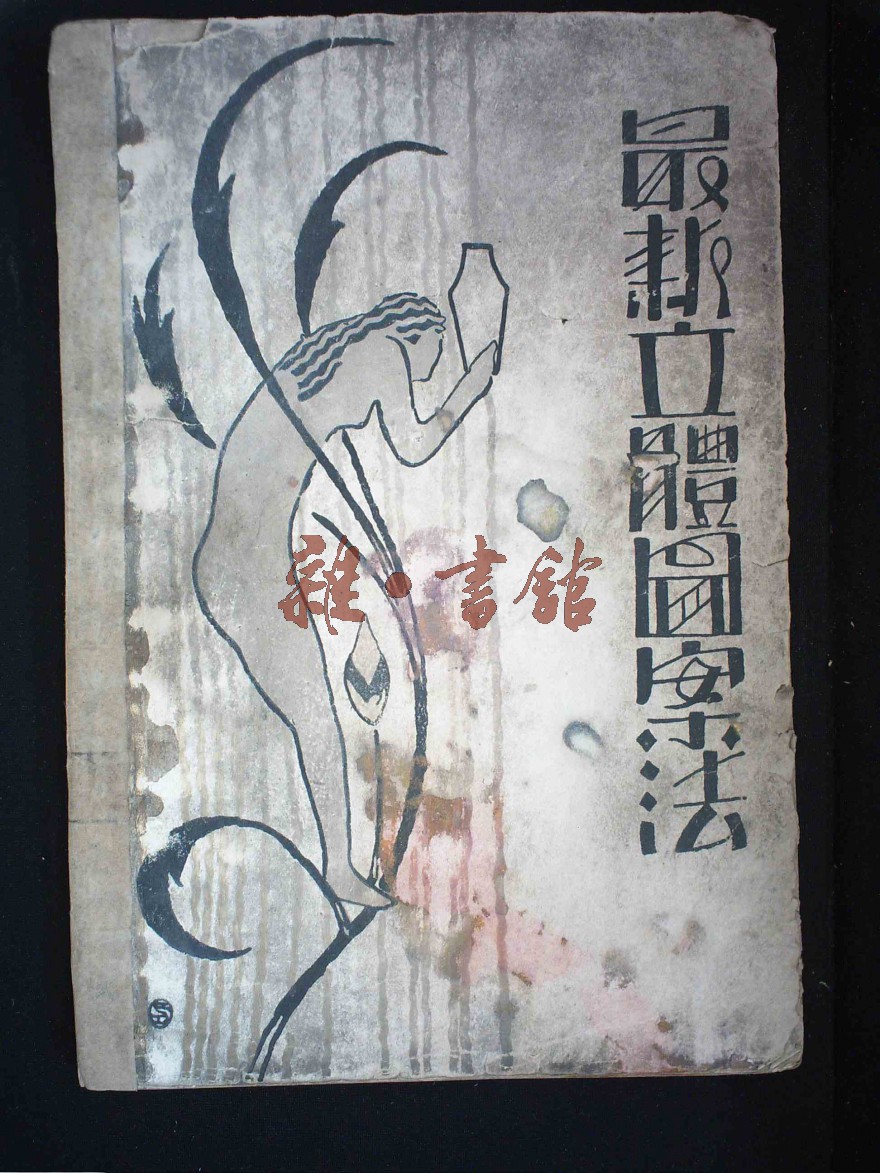 最新立體圖案法
雜·書館